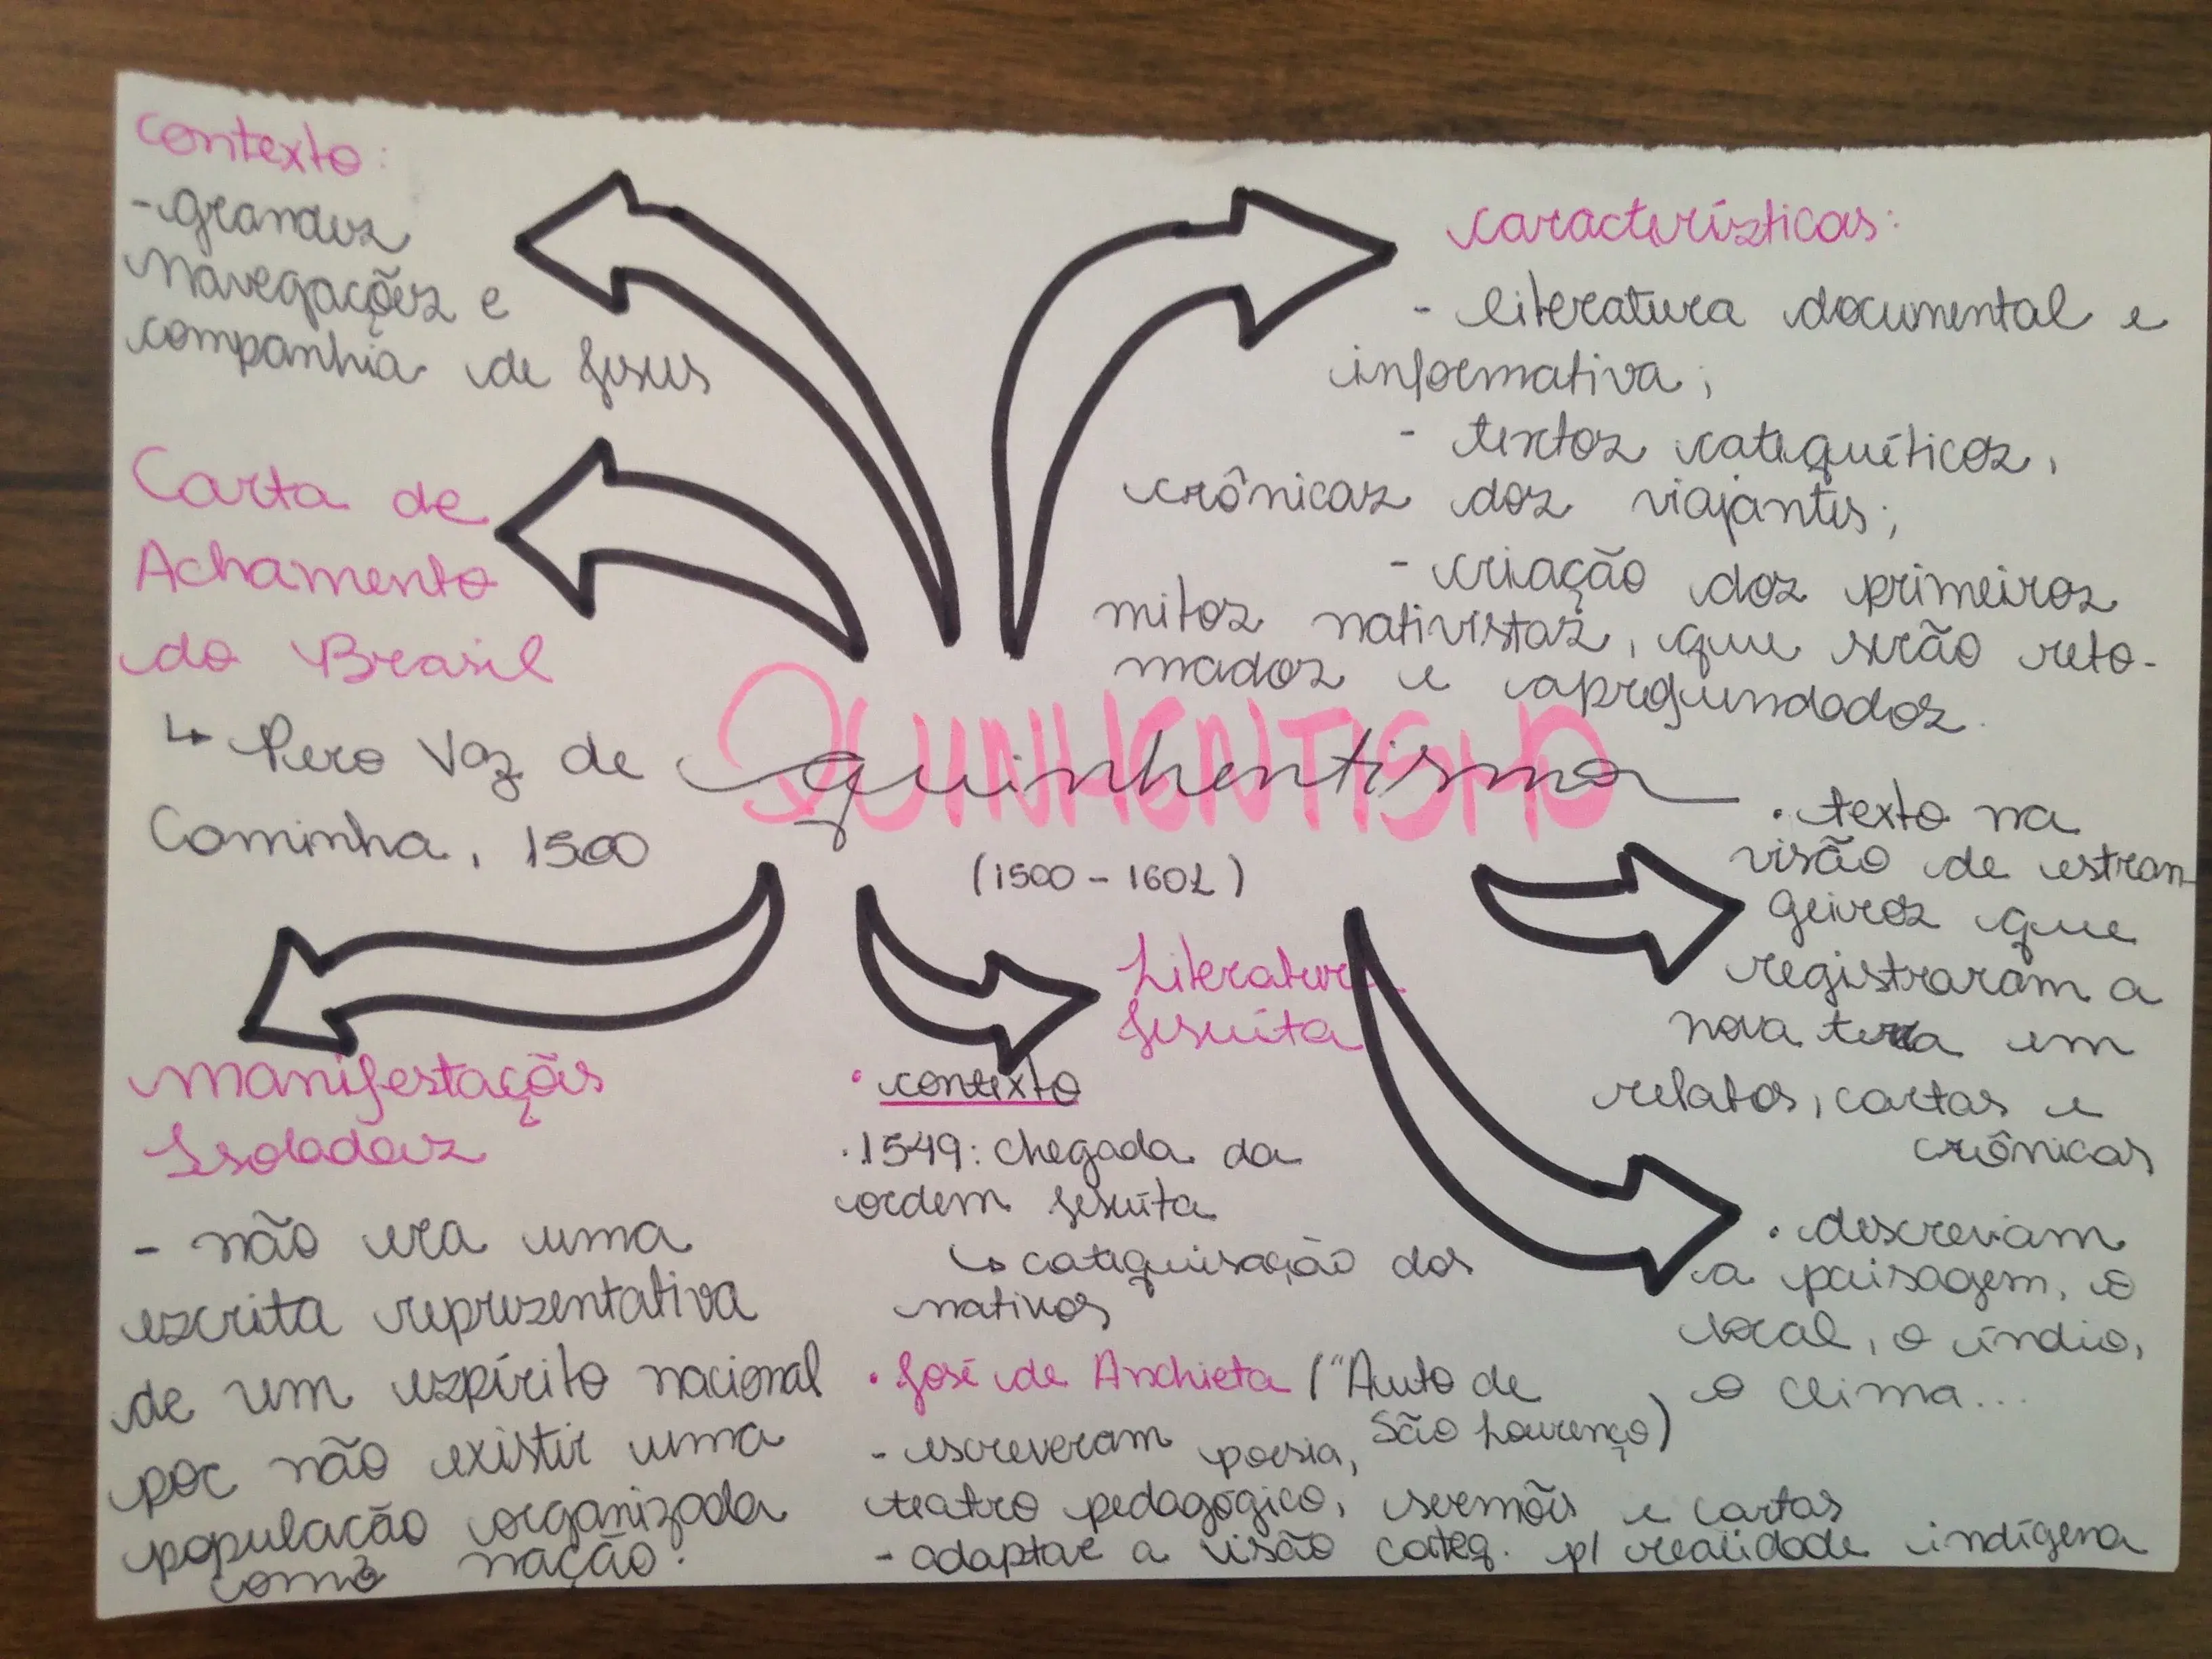 contexto:
- grandes
navegações e
companhia de Jesus
Carta de
Achamento
do Brasil
↳ Pero Vaz de
Caminha, 1500
características:
- literatura documental e
informativa;
- textos catequéticos,
crônicas dos viajantes;
- criação dos primeiros
mitos nativistas, que serão reto-
mados e aprofundados.
QUINHENTISMO
quinhentismo
(1500 - 1601)
• texto na
visão de estran-
geiros que
registraram a
nova terra em
relatos, cartas e
crônicas
• descreviam
a paisagem, o
local, o índio,
o clima...
Manifestações
Isoladas
- não era uma
escrita representativa
de um espírito nacional
por não existir uma
população organizada
como nação.
Literatura
Jesuíta
• contexto
• 1549: chegada da
ordem jesuíta
↳ catequisação dos
nativos
• José de Anchieta ("Auto de
São Lourenço)
- escreveram poesia,
teatro pedagógico, sermões e cartas
- adaptar a visão categ. p/ realidade indígena